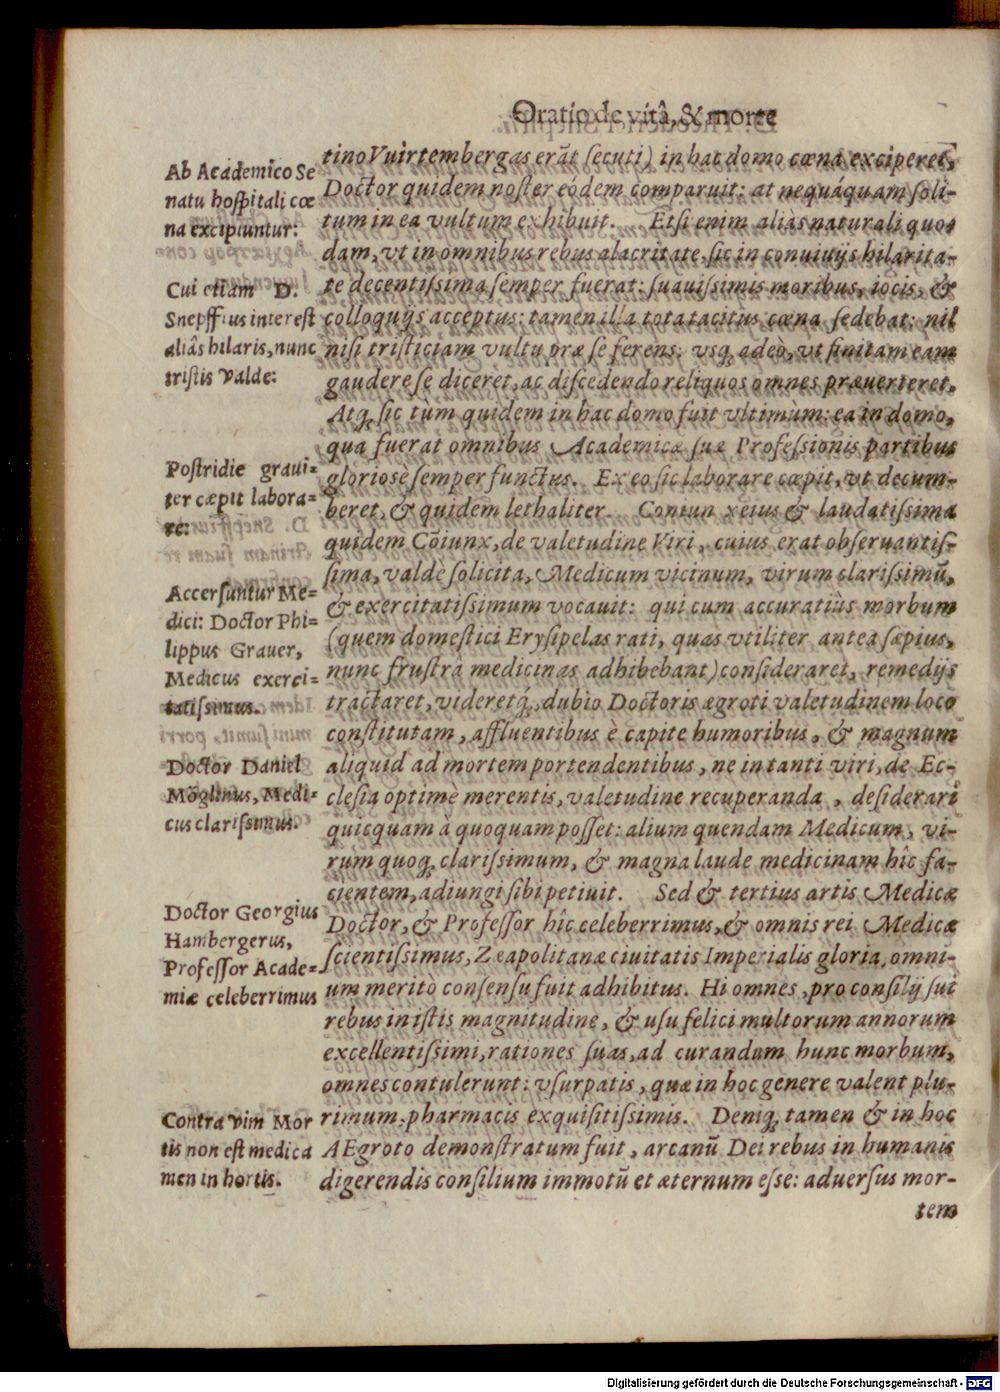 Oratio de vitâ, & morte
Ab Academico Se
natu hospitali cœ
na excipiuntur:
Cui etiam D.
Snepffius interest
aliâs hilaris, nunc
tristis valde:
Postridie gravi=
ter cæpit labora=
re:
Accersuntur Me=
dici: Doctor Phi=
lippus Grauer,
Medicus exerci=
tatissimus.
Doctor Daniel
Möglinus, Medi=
cus clarissimus.
Doctor Georgius
Hambergerus,
Professor Acade=
miæ celeberrimus
Contra vim Mor
tis non est medica
men in hortis.
tino Vuirtembergas erãt secuti) in hac domo cœna exciperet,
Doctor quidem noster eodem comparuit: at nequáquam soli-
tum in ea vultum exhibuit. Etsi enim aliàs naturali quo-
dam, vt in omnibus rebus alacritate, sic in conuiuijs hilarita-
te decentissima semper fuerat: suauissimis moribus, iocis, &
colloquijs acceptus: tamen illa tota tacitus cœna sedebat: nil
nisi tristiciam vultu præ se ferens: vsq; adeò, vt finitam eam
gaudere se diceret, ac discedendo reliquos omnes præuerteret.
Atq; sic tùm quidem in hac domo fuit vltimùm: ea in domo,
qua fuerat omnibus Academicæ suæ Professionis partibus
gloriosè semper functus. Ex eo sic laborare cœpit, vt decum-
beret, & quidem lethaliter. Coniun x eius & laudatissima
quidem Cõiunx, de valetudine Viri, cuius erat obseruantis-
sima, valdè solicita, Medicum vicinum, virum clarissimũ,
& exercitatissimum vocauit: qui cum accuratiùs morbum
(quem domestici Erysipelas rati, quas vtiliter antea sæpius,
nunc frustrà medicinas adhibebant) consideraret, remedijs
tractaret, videretq́;, dubio Doctoris ægroti valetudinem loco
constitutam, affluentibus è capite humoribus, & magnum
aliquid ad mortem portendentibus, ne in tanti viri, de Ec-
clesia optimè merentis, valetudine recuperanda, desiderari
quicquam à quoquam posset: alium quendam Medicum, vi-
rum quoq; clarissimum, & magna laude medicinam hîc fa-
cientem, adiungi sibi petiuit. Sed & tertius artis Medicæ
Doctor, & Professor hîc celeberrimus, & omnis rei Medicæ
scientissimus, Zeapolitanæ ciuitatis Imperialis gloria, omni-
um meritò consensu fuit adhibitus. Hi omnes, pro consilij sui
rebus in istis magnitudine, & usu felici multorum annorum
excellentissimi, rationes suas, ad curandum hunc morbum,
omnes contulerunt: vsurpatis, quæ in hoc genere valent plu-
rimum, pharmacis exquisitissimis. Deniq; tamen & in hoc
AEgroto demonstratum fuit, arcanũ Dei rebus in humanis
digerendis consilium immotũ et æternum esse: aduersus mor-
tem
Digitalisierung gefördert durch die Deutsche Forschungsgemeinschaft - DFG